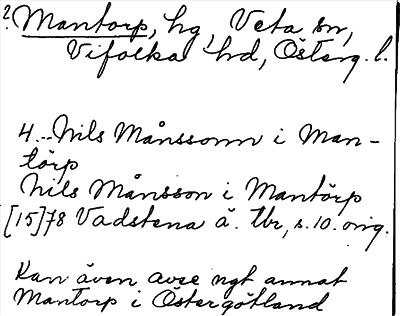 ? Mantorp, hg, Veta sn,
Vifolka hd, Österg. l.
4. Nils Månssonn i Man-
törp
Nils Månsson i Mantörp
[15]78 Vadstena ä. tbr, s. 10. orig.
Kan även avse ngt annat
Mantorp i Östergötland